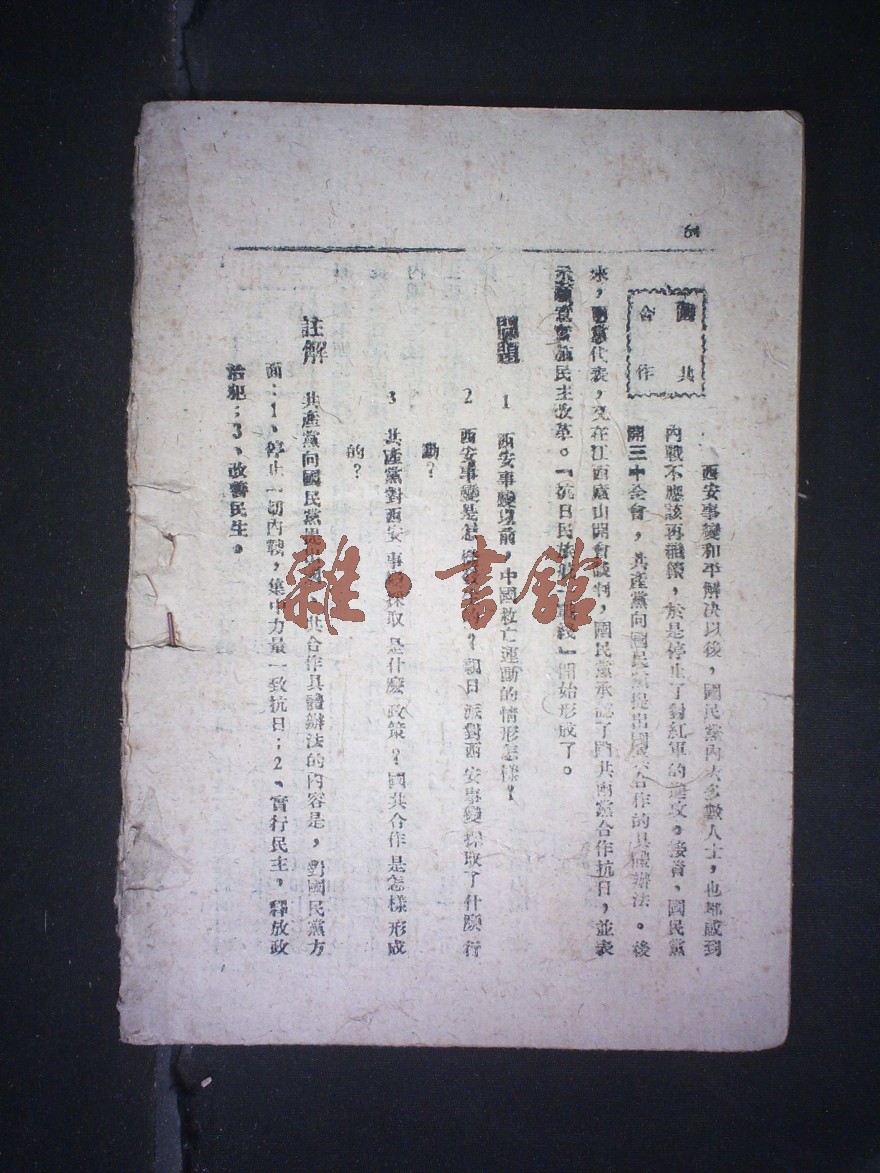 64
國共
合作
西安事變和平解決以後，國民黨內大多數人士，也都感到
內戰不應該再繼續，於是停止了對紅軍的進攻。接着、國民黨
開三中全會，共產黨向國民黨提出國共合作的具體辦法。後
來，兩黨代表，又在江西廬山開會談判，國民黨承認了國共兩黨合作抗日，並表
示願意實施民主改革。「抗日民族統一戰綫」開始形成了。
問題
1 西安事變以前，中國救亡運動的情形怎樣？
2 西安事變是怎樣 ？親日派對西安事變採取了什麽行
動？
3 共產黨對西安事變採取是什麽政策？國共合作是怎樣形成
的？
註解
共產黨向國民黨提出國共合作具體辦法的內容是，對國民黨方
面：1、停止一切內戰，集中力量一致抗日；2、實行民主，釋放政
治犯；3、改善民生。
雜·書館